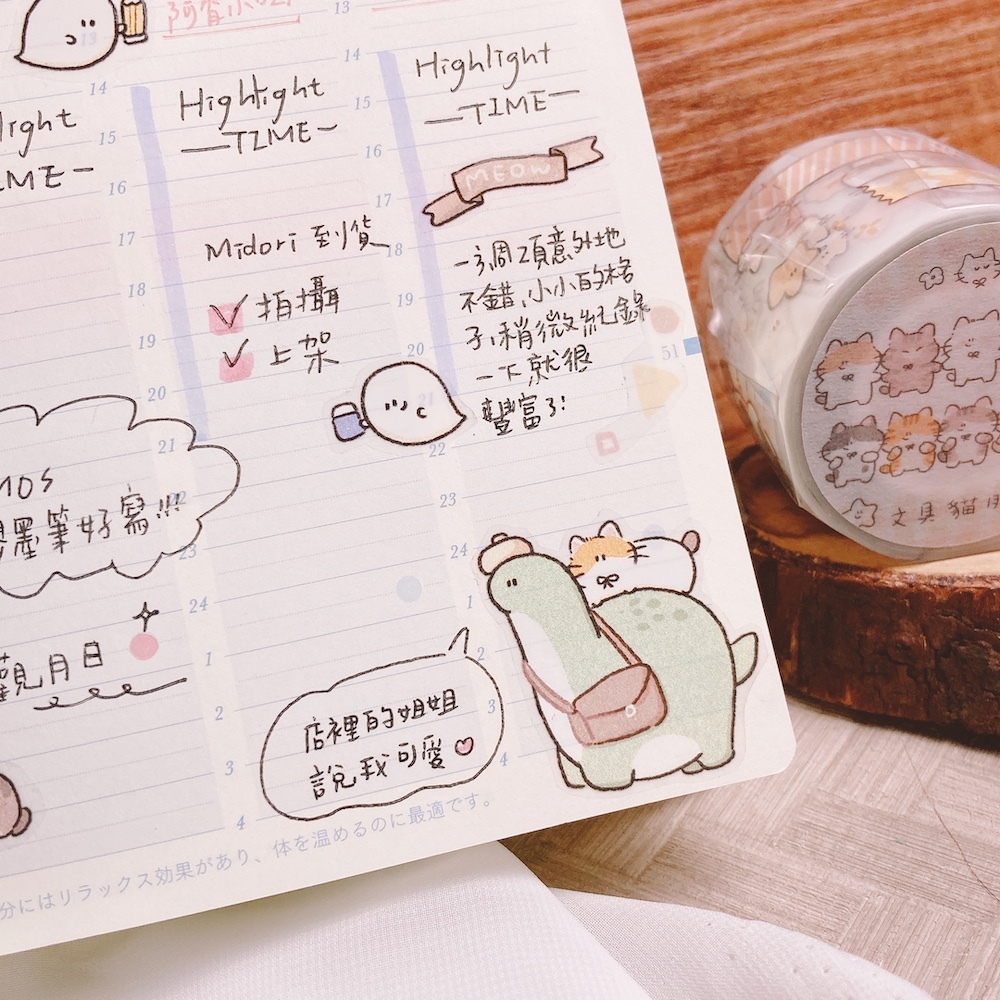 Highlight
—TIME—
Midori 到貨
拍攝
上架
Highlight
—TIME—
MEOW
一週2頁意外地
不錯,小小的格
子,稍微紀錄
一下就很
豐富了!
MOS
墨筆好寫!!!
觀月日
店裡的姐姐
說我可愛
分にはリラックス効果があり、体を温めるのに最適です。
13
14
15
16
17
18
19
20
21
22
23
24
1
2
3
4
14
15
16
17
18
19
20
21
22
23
24
1
2
3
4
51
文具貓